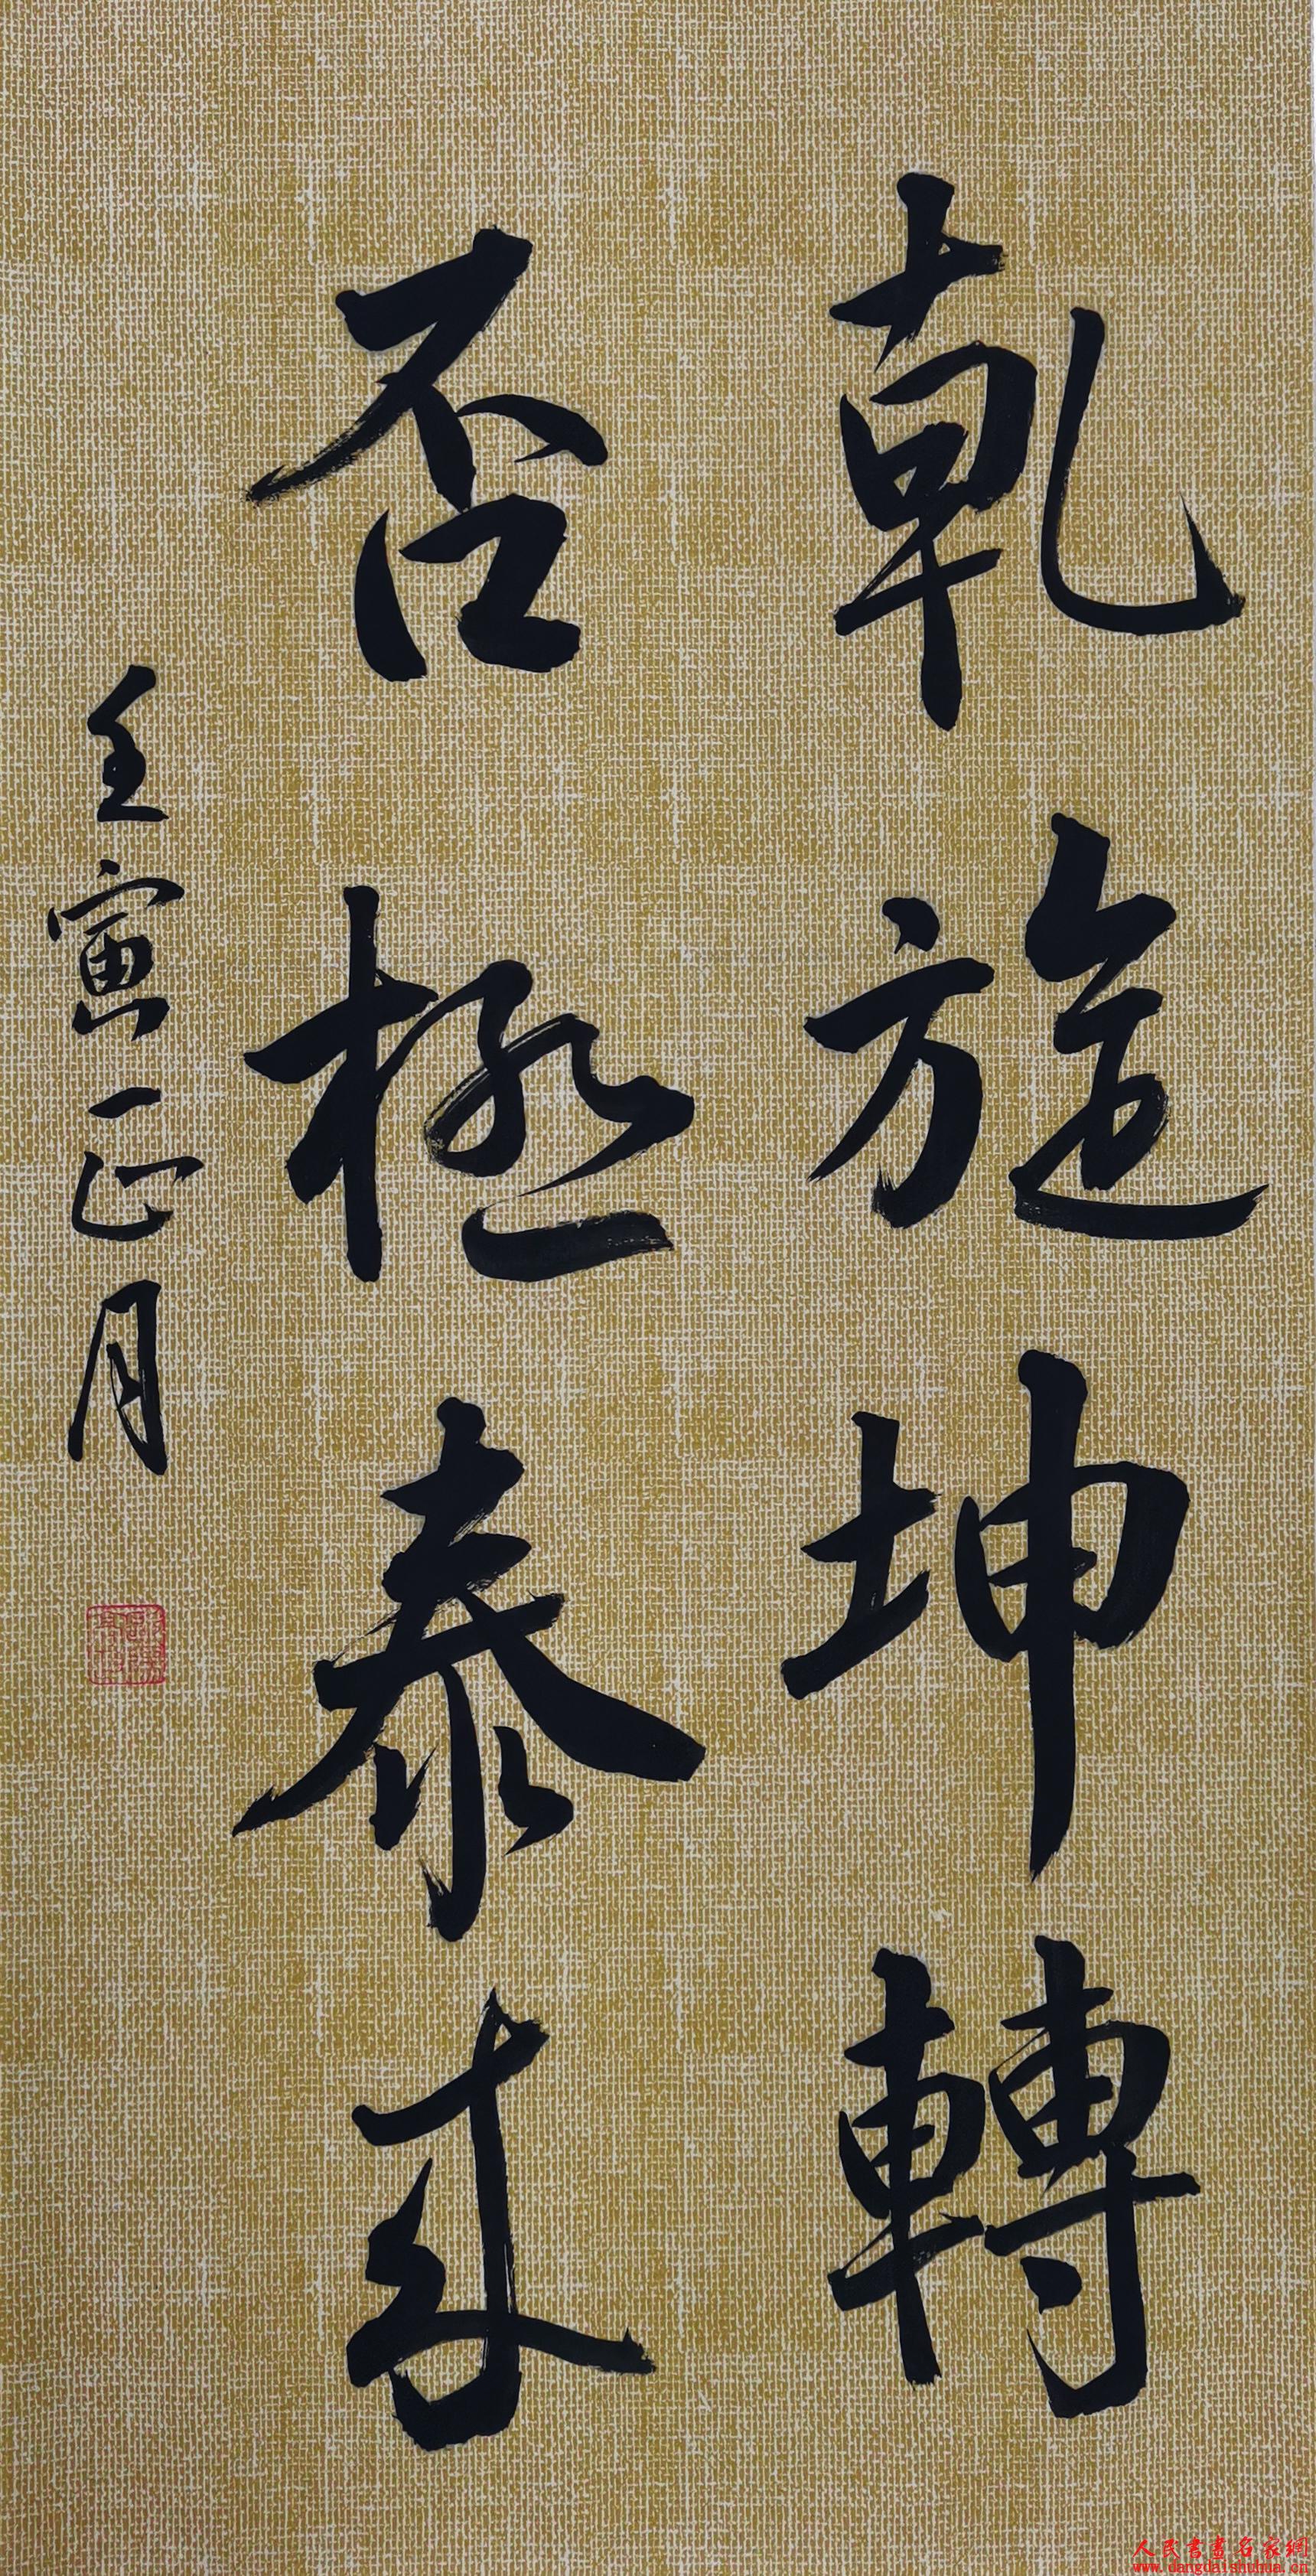 乾旋坤轉
否極泰来
壬寅正月
人民書畫名家網
www.dangdaishuhua.cn